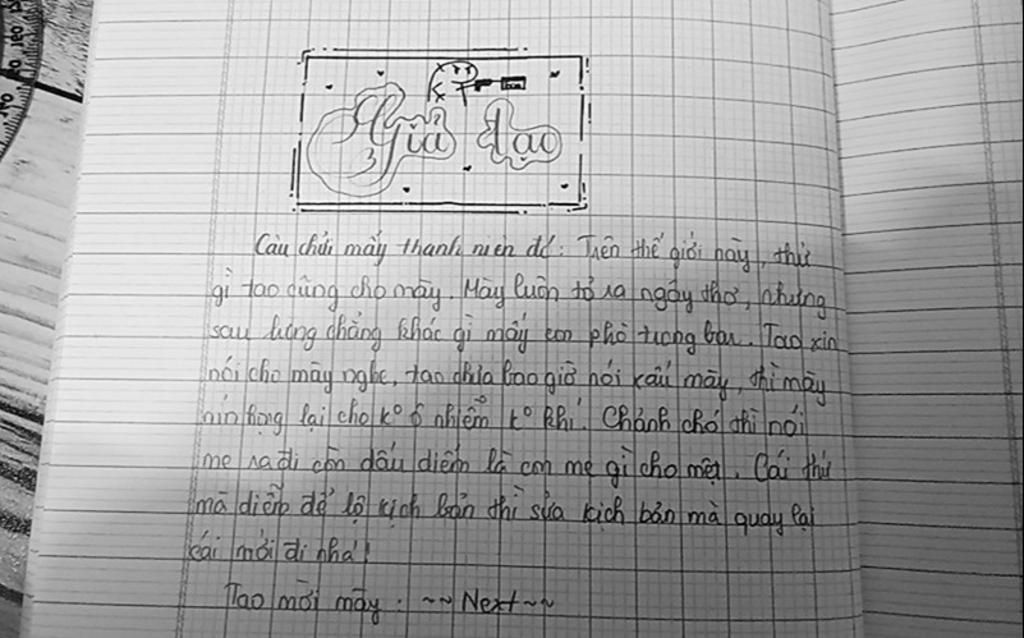 Giả tạo
Câu chửi mấy thanh niên đó: Trên thế giới này, thứ
gì tao cũng cho mày. Mày luôn tỏ ra ngây thơ, nhưng
sau lưng chẳng khác gì mấy con phò trong bar. Tao xin
nói cho mày nghe, tao chưa bao giờ nói xấu mày, thì mày
nín họng lại cho k° ô nhiễm k° khí. Chảnh chó thì nói
mẹ ra đi còn dấu diếm là con mẹ gì cho mệt. Cái thứ
mà diễn để lộ kịch bản thì sửa kịch bản mà quay lại
cái mới đi nhá!
Tao mời mày: ~~Next~~